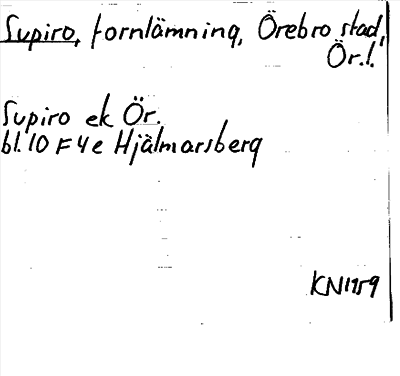 Supiro, fornlämning, Örebro stad,
Ör.l.
Supiro ek Ör.
bl. 10 F 4 e Hjälmarsberg
KN1959